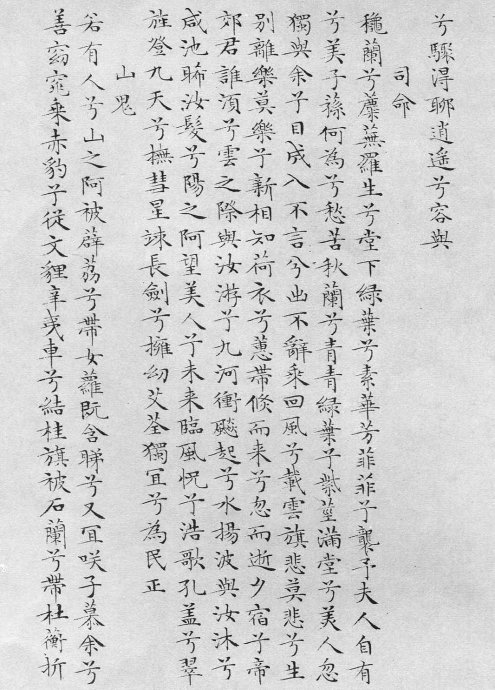 兮驟得聊逍遙兮容與
司命
穐蘭兮蘪蕪羅生兮堂下綠葉兮素華芳菲菲兮襲予夫人自有
兮美子蓀何為兮愁苦秋蘭兮青青綠葉兮紫莖滿堂兮美人忽
獨與余兮目成入不言兮出不辭乘回風兮載雲旗悲莫悲兮生
別離樂莫樂兮新相知荷衣兮蕙帶倏而来兮忽而逝夕宿兮帝
郊君誰須兮雲之際與汝游兮九河衝飈起兮水揚波與汝沐兮
咸池晞汝髮兮陽之阿望美人兮未来臨風怳兮浩歌孔盖兮翠
旌登九天兮撫彗星竦長劍兮擁幼艾荃獨冝兮為民正
山鬼
若有人兮山之阿被薜荔兮帶女蘿旣含睇兮又冝咲子慕余兮
善窈窕乗赤豹兮從文貍辛夷車兮結桂旗被石蘭兮帶杜蘅折